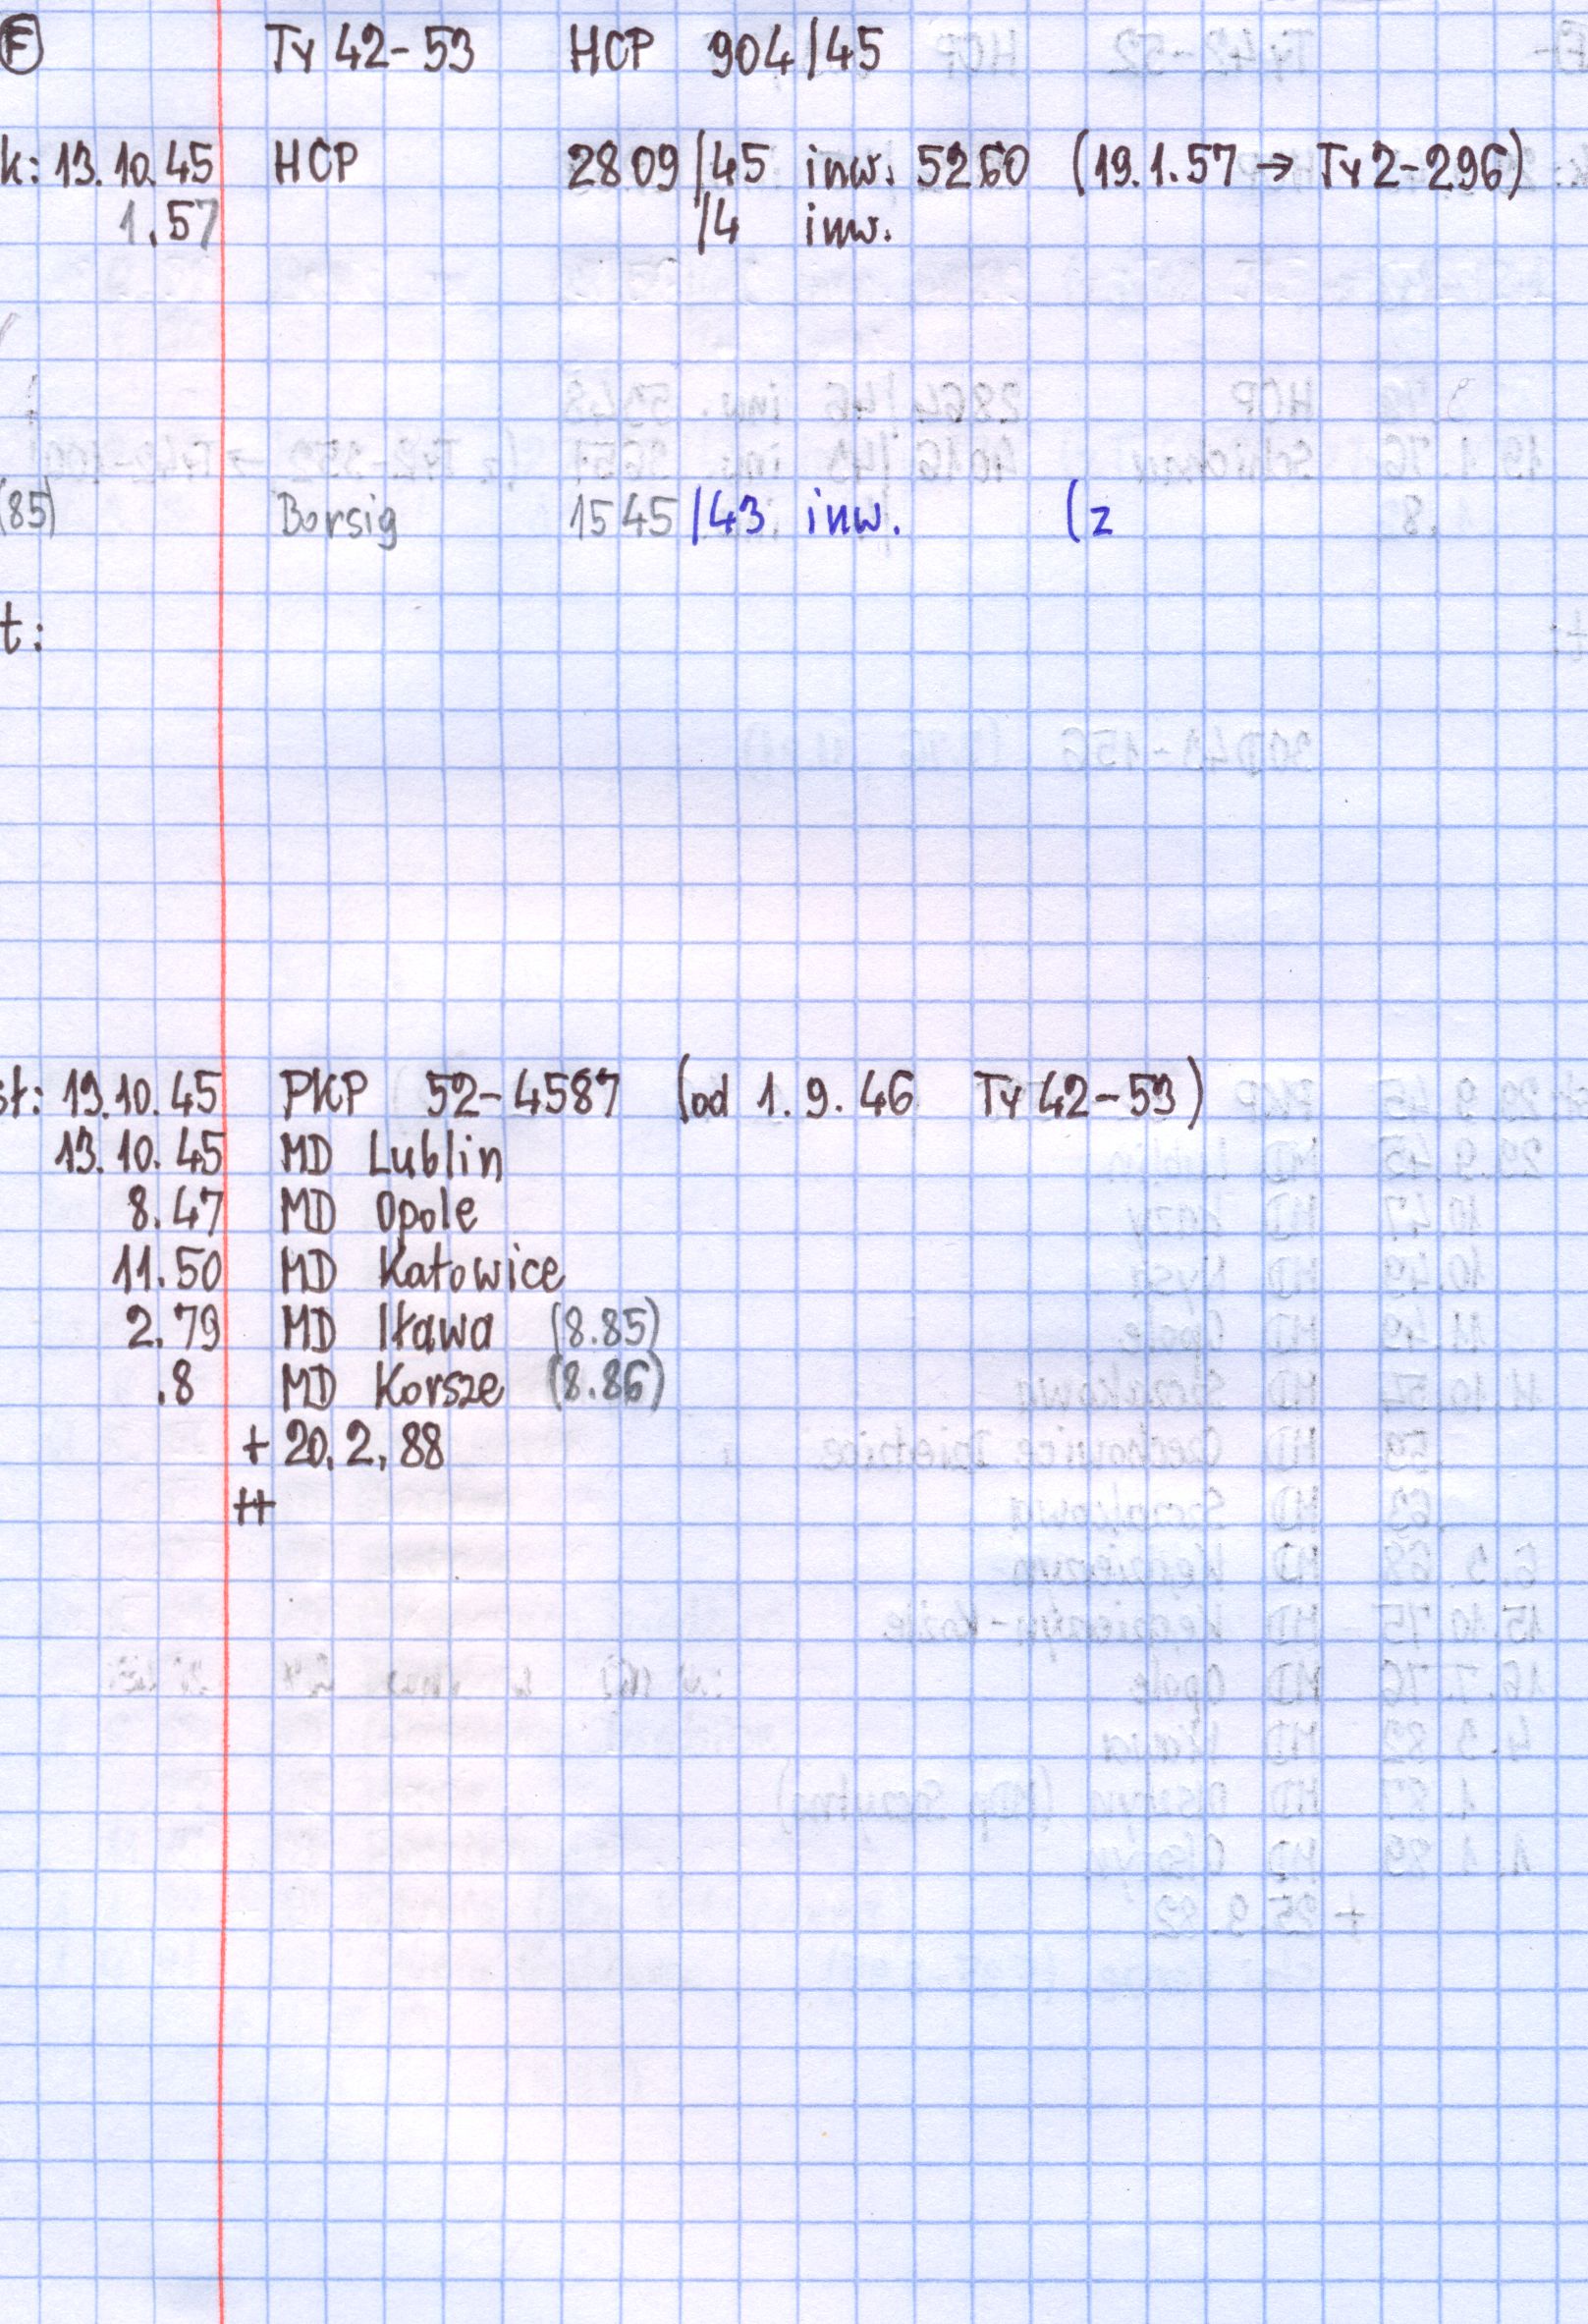 F Ty 42-53 HCP 904/45
k: 13.10.45 HCP 2809/45 inw. 5260 (19.1.57 → Ty 2-296)
1.57 /4 inw.
(85) Borsig 1545/43 inw. (z
t:
st: 13.10.45 PKP 52-4587 (od 1.9.46 Ty 42-53)
13.10.45 MD Lublin
8.47 MD Opole
11.50 MD Katowice
2.79 MD Iława (8.85)
.8 MD Korsze (8.86)
+ 20.2.88
++